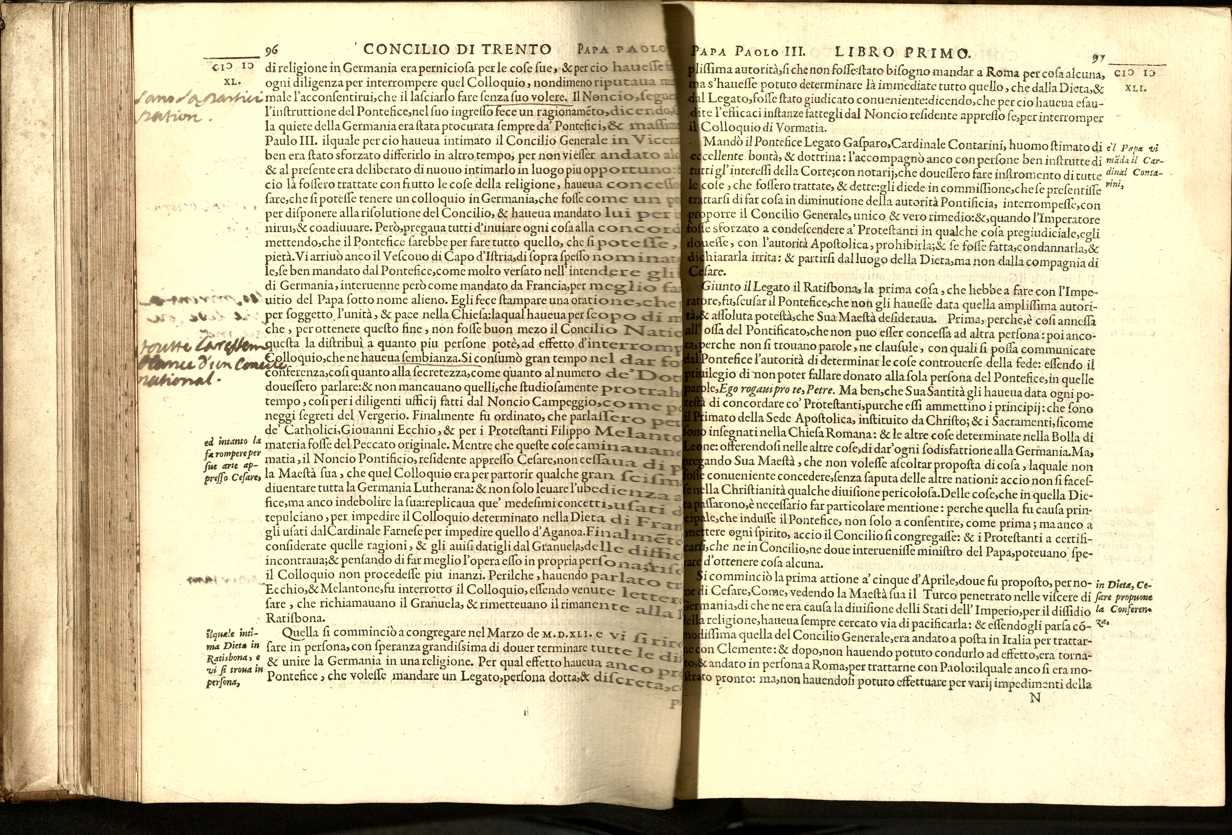 96 CONCILIO DI TRENTO PAPA PAOLO
CIↃ IↃ
XL.
di religione in Germania era perniciosa per le cose sue, & per cio hauesse
ogni diligenza per interrompere quel Colloquio, nondimeno riputaua
male l'acconsentirui, che il lasciarlo fare senza suo volere. Il Noncio, segue
l'instruttione del Pontefice, nel suo ingresso fece un ragionamēto, dicendo,
la quiete della Germania era stata procurata sempre da' Pontefici, & massi
Paulo III. il quale per cio haueua intimato il Concilio Generale in Vicen
ben era stato sforzato differirlo in altro tempo, per non vi esser andato
& al presente era deliberato di nuouo intimarlo in luogo piu opportuno:
cio là fossero trattate con frutto le cose della religione, haueua concesso
sare, che si potesse tenere un colloquio in Germania, che fosse come un p
per disponere alla risolutione del Concilio, & haueua mandato lui per i
nirui, & coadiuuare. Però, pregaua tutti d'inuiare ogni cosa alla concord
mettendo, che il Pontefice sarebbe per fare tutto quello, che si potesse,
pietà. Vi arriuò anco il Vescouo di Capo d'Istria, di sopra spesso nominat
le, se ben mandato dal Pontefice, come molto versato nell'intendere gli
di Germania, interuenne però come mandato da Francia, per meglio far
uitio del Papa sotto nome alieno. Egli fece stampare una oratione, che
per soggetto l'unità, & pace nella Chiesa: la qual haueua per scopo di m
che, per ottenere questo fine, non fosse buon mezo il Concilio Natio
questa la distribuì a quanto piu persone potè, ad effetto d'interromp
Colloquio, che ne haueua sembianza. Si consumò gran tempo nel dar fo
conferenza, cosi quanto alla secretezza, come quanto al numero de' Dot
douessero parlare: & non mancauano quelli, che studiosamente protrah
tempo, cosi per i diligenti ufficij fatti dal Noncio Campeggio, come p
neggi segreti del Vergerio. Finalmente fu ordinato, che parlassero pe
de' Catholici, Giouanni Ecchio, & per i Protestanti Filippo Melanto
materia fosse del Peccato originale. Mentre che queste cose caminauano
matia, il Noncio Pontificio, residente appresso Cesare, non cessaua di p
la Maestà sua, che quel Colloquio era per partorir qualche gran scism
diuentare tutta la Germania Lutherana: & non solo leuare l'ubedienza a
fice, ma anco indebolire la sua: replicaua que' medesimi concetti, usati d
tepulciano, per impedire il Colloquio determinato nella Dieta di Fran
gli usati dal Cardinale Farnese per impedire quello d'Aganoa. Finalmēte
considerate quelle ragioni, & gli auisi datigli da Granuela, delle diffic
incontraua; & pensando di far meglio l'opera esso in propria persona, ris
il Colloquio non procedesse piu inanzi. Perilche, hauendo parlato tr
Ecchio, & Melantone, fu interrotto il Colloquio, essendo venute lettere
sare, che richiamauano il Granuela, & rimetteuano il rimanente alla
Ratisbona.
Quella si comminciò a congregare nel Marzo de M.D.XLI. e vi si ri
sare in persona, con speranza grandissima di douer terminare tutte le di
& unire la Germania in una religione. Per qual effetto haueua anco pr
Pontefice, che volesse mandare un Legato, persona dotta, & discreta, c
ration.
ed intanto la
fa rompere per
sue arte ap-
presso Cesare,
national.
ilquale inti-
ma Dieta in
Ratisbona, e
vi si troua in
persona,
PAPA PAOLO III. LIBRO PRIMO. 97
CIↃ IↃ
XLI.
plissima autorità, si che non fosse stato bisogno mandar a Roma per cosa alcuna,
ma s'hauesse potuto determinare là immediate tutto quello, che dalla Dieta, &
dal Legato, fosse stato giudicato conueniente: dicendo, che per cio haueua esau-
dite l'efficaci instanze fattegli dal Noncio residente appresso se, per interromper
il Colloquio di Vormatia.
Mandò il Pontefice Legato Gasparo, Cardinale Contarini, huomo stimato di
eccellente bontà, & dottrina: l'accompagnò anco con persone ben instrutte di
tutti gl'interessi della Corte; con notarij, che douessero fare instromento di tutte
le cose, che fossero trattate, & dette: gli diede in commissione, che se presentisse
trattarsi di far cosa in diminutione della autorità Pontificia, interrompesse, con
proporre il Concilio Generale, unico & vero rimedio: &, quando l'Imperatore
fosse sforzato a condescendere a' Protestanti in qualche cosa pregiudiciale, egli
douesse, con l'autorità Apostolica, prohibirla; & se fosse fatta, condannarla, &
dichiararla irrita: & partirsi dal luogo della Dieta, ma non dalla compagnia di
Cesare.
Giunto il Legato il Ratisbona, la prima cosa, che hebbe a fare con l'Impe-
ratore, fu, scusar il Pontefice, che non gli hauesse data quella amplissima autori-
tà, & assoluta potestà, che Sua Maestà desideraua. Prima, perche, è cosi annessa
all'ossa del Pontificato, che non puo esser concessa ad altra persona: poi anco-
ra, perche non si trouano parole, ne clausule, con quali si possa communicare
dal Pontefice l'autorità di determinar le cose controuerse della fede: essendo il
priuilegio di non poter fallare donato alla sola persona del Pontefice, in quelle
parole, Ego rogaui pro te, Petre. Ma ben, che Sua Santità gli haueua data ogni po-
testà di concordare co' Protestanti, purche essi ammettino i principij: che sono
il Primato della Sede Apostolica, instituito da Christo; & i Sacramenti, sicome
sono insegnati nella Chiesa Romana: & le altre cose determinate nella Bolla di
Leone: offerendosi nelle altre cose, di dar'ogni sodisfattione alla Germania. Ma,
pregando Sua Maestà, che non volesse ascoltar proposta di cosa, laquale non
fosse conueniente concedere, senza saputa delle altre nationi: accio non si faces-
se nella Christianità qualche diuisione pericolosa. Delle cose, che in quella Die-
ta passarono, è necessario far particolare mentione: perche quella fu causa prin-
cipale, che indusse il Pontefice, non solo a consentire, come prima; ma anco a
mettere ogni spirito, accio il Concilio si congregasse: & i Protestanti a certifi-
carsi, che ne in Concilio, ne doue interuenisse ministro del Papa, poteuano spe-
rare d'ottenere cosa alcuna.
Si comminciò la prima attione a' cinque d'Aprile, doue fu proposto, per no-
me di Cesare, Come, vedendo la Maestà sua il Turco penetrato nelle viscere di
Germania, di che ne era causa la diuisione delli Stati dell'Imperio, per il dissidio
della religione, haueua sempre cercato via di pacificarla: & essendogli parsa cō-
modissima quella del Concilio Generale, era andato a posta in Italia per trattar-
ne con Clemente: & dopo, non hauendo potuto condurlo ad effetto, era torna-
to, & andato in persona a Roma, per trattarne con Paolo: ilquale anco si era mo-
strato pronto: ma, non hauendosi potuto effettuare per varij impedimenti della
N
e'l Papa vi
māda il Car-
dinal Conta-
rini,
in Dieta, Ce-
sare propone
la Conferen-
za.